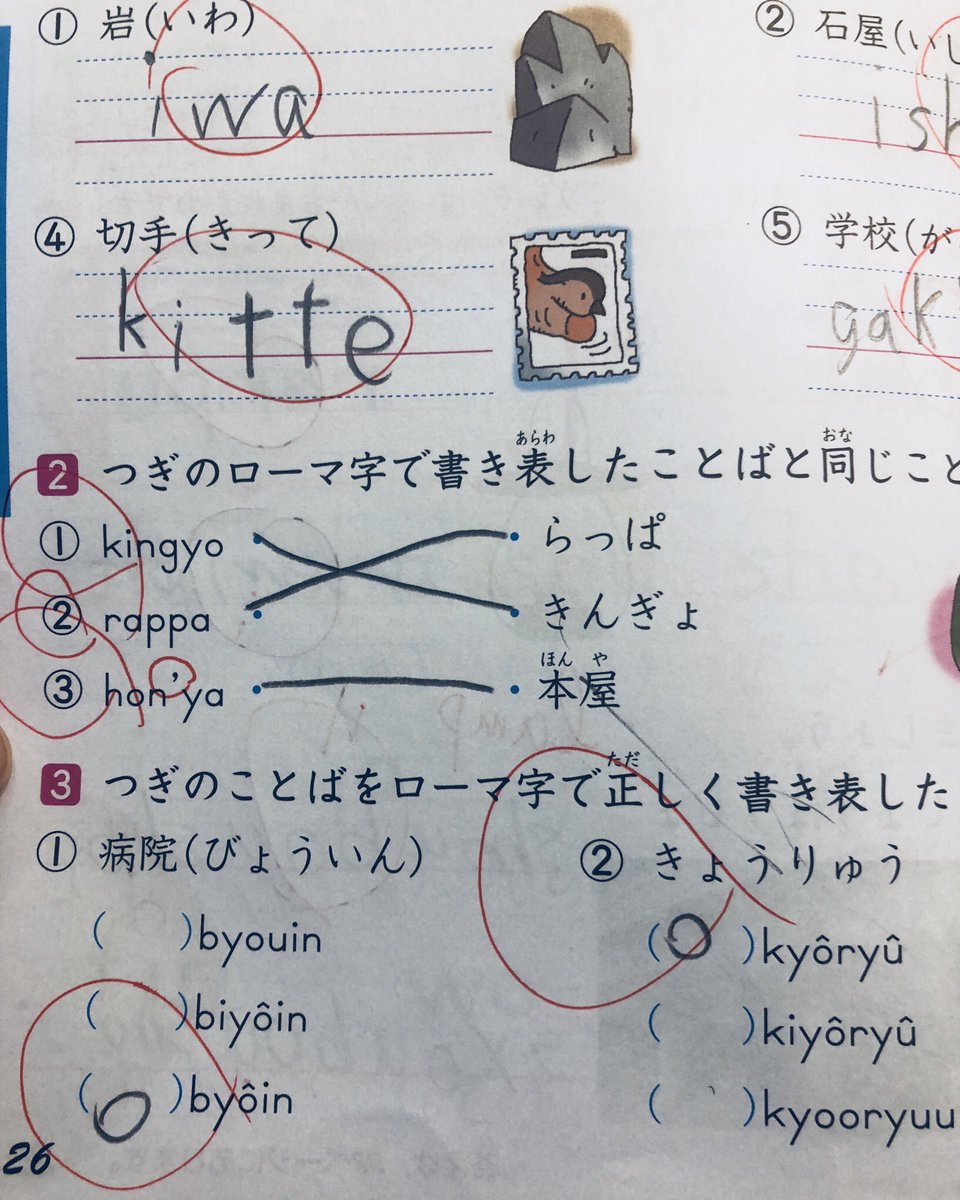 ① 岩(いわ)
② 石屋(いし
iwa
ish
④ 切手(きって)
⑤ 学校(が
kitte
gak
2 つぎのローマ字で書き表したことばと同じこと
あらわ
おな
① kingyo
らっぱ
② rappa
きんぎょ
③ hon'ya
本屋
ほん や
3 つぎのことばをローマ字で正しく書き表した
ただ
① 病院(びょういん)
② きょうりゅう
( )byouin
(○)kyôryû
( )biyôin
( )kiyôryû
(○)byôin
( )kyooryuu
26